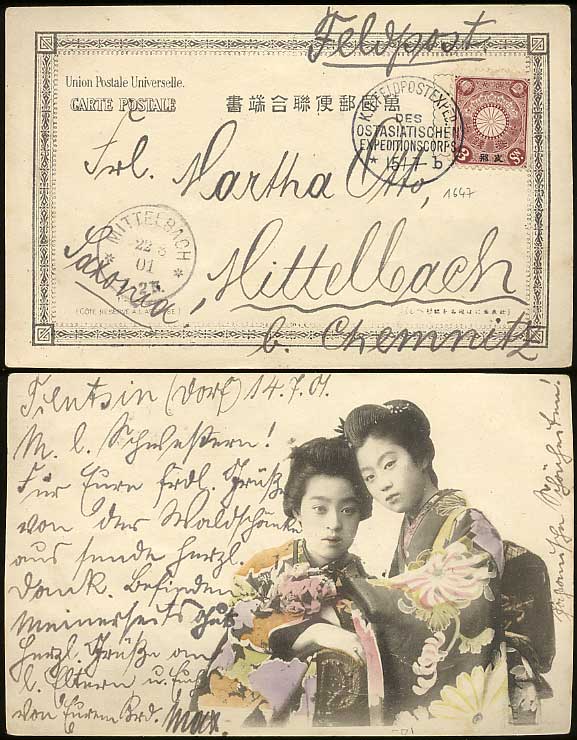 Feldpost.
Union Postale Universelle.
CARTE POSTALE
萬國郵便聯合端書
K.D. FELDPOSTEXPED.
DES
OSTASIATISCHEN
EXPEDITIONSCORPS
* 15/7 b
3 Sn
支那
Frl. Martha Otto,
1647
MITTELBACH
22 8
01
* *
Saxonia, Mittelbach
b. Chemnitz
(CÔTÉ RÉSERVÉ A L'ADRESSE)
Tientsin (Dorf) 14.7.01.
M. l. Schwestern!
Für Eure frdl. Grüße
von der Waldschänke
aus sende herzl.
Dank. Befinden
meinerseits gut
Herzl. Grüße an
l. Eltern u. Euch
von Eurem Brd. Max.
Japanische Schönheiten!
-01